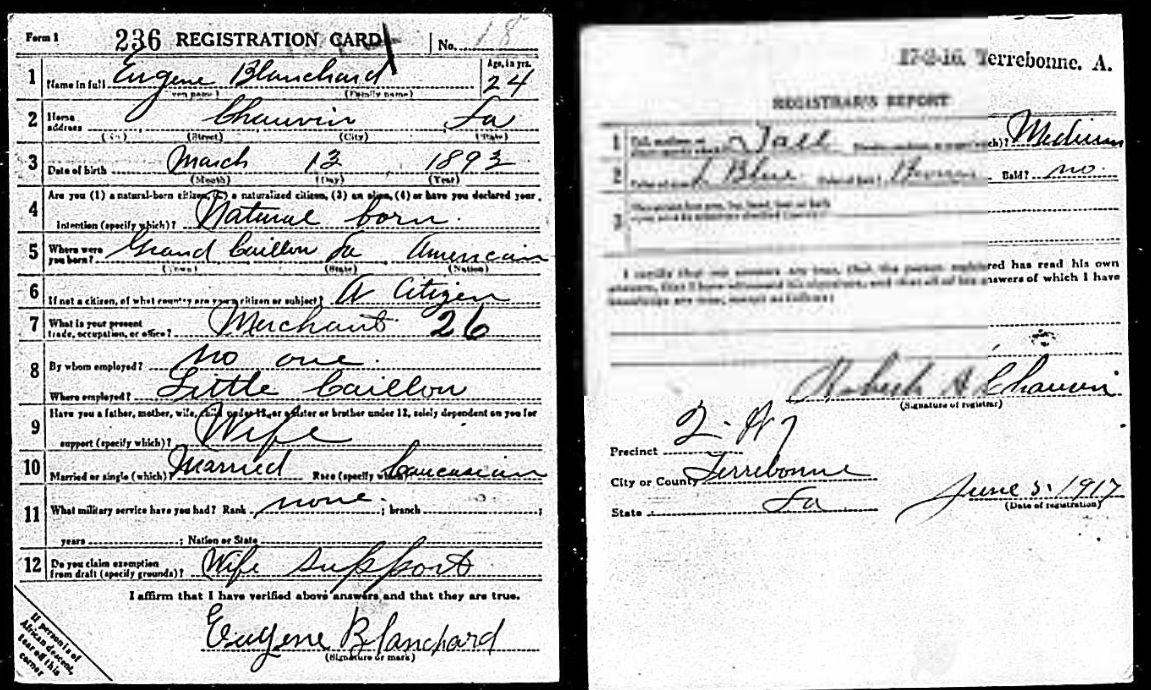 Form 1 236 REGISTRATION CARD No. 18
1 Name in full Eugene Blanchard Age, in yrs. 24
(Given name) (Family name)
2 Home address Chauvin La
(No.) (Street) (City) (State)
3 Date of birth March 13 1893
(Month) (Day) (Year)
4 Are you (1) a natural-born citizen, (2) a naturalized citizen, (3) an alien, (4) or have you declared your
intention (specify which)? Natural born.
5 Where were you born? Grand Caillou La American
(Town) (State) (Nation)
6 If not a citizen, of what country are you a citizen or subject? A Citizen
7 What is your present trade, occupation, or office? Merchant 26
8 By whom employed? no one.
Where employed? Little Caillou
9 Have you a father, mother, wife, child under 12, or a sister or brother under 12, solely dependent on you for
support (specify which)? Wife
10 Married or single (which)? Married Race (specify which)? Caucasian
11 What military service have you had? Rank none. ; branch ;
years ; Nation or State
12 Do you claim exemption from draft (specify grounds)? Wife support
I affirm that I have verified above answers and that they are true.
Eugene Blanchard
(Signature or mark)
If person is of
African descent,
tear off this
corner
17-2-16. Terrebonne. A.
REGISTRAR'S REPORT
1 Tall Medium
2 Blue Color of hair? Brown Bald? no.
3
I certify that my answers are true, that the person registered has read his own
answers, that I have witnessed his signature, and that all of his answers of which I have
knowledge are true, except as follows:
A Chauvin
(Signature of registrar)
Precinct
City or County Terrebonne
State La June 5. 1917
(Date of registration)